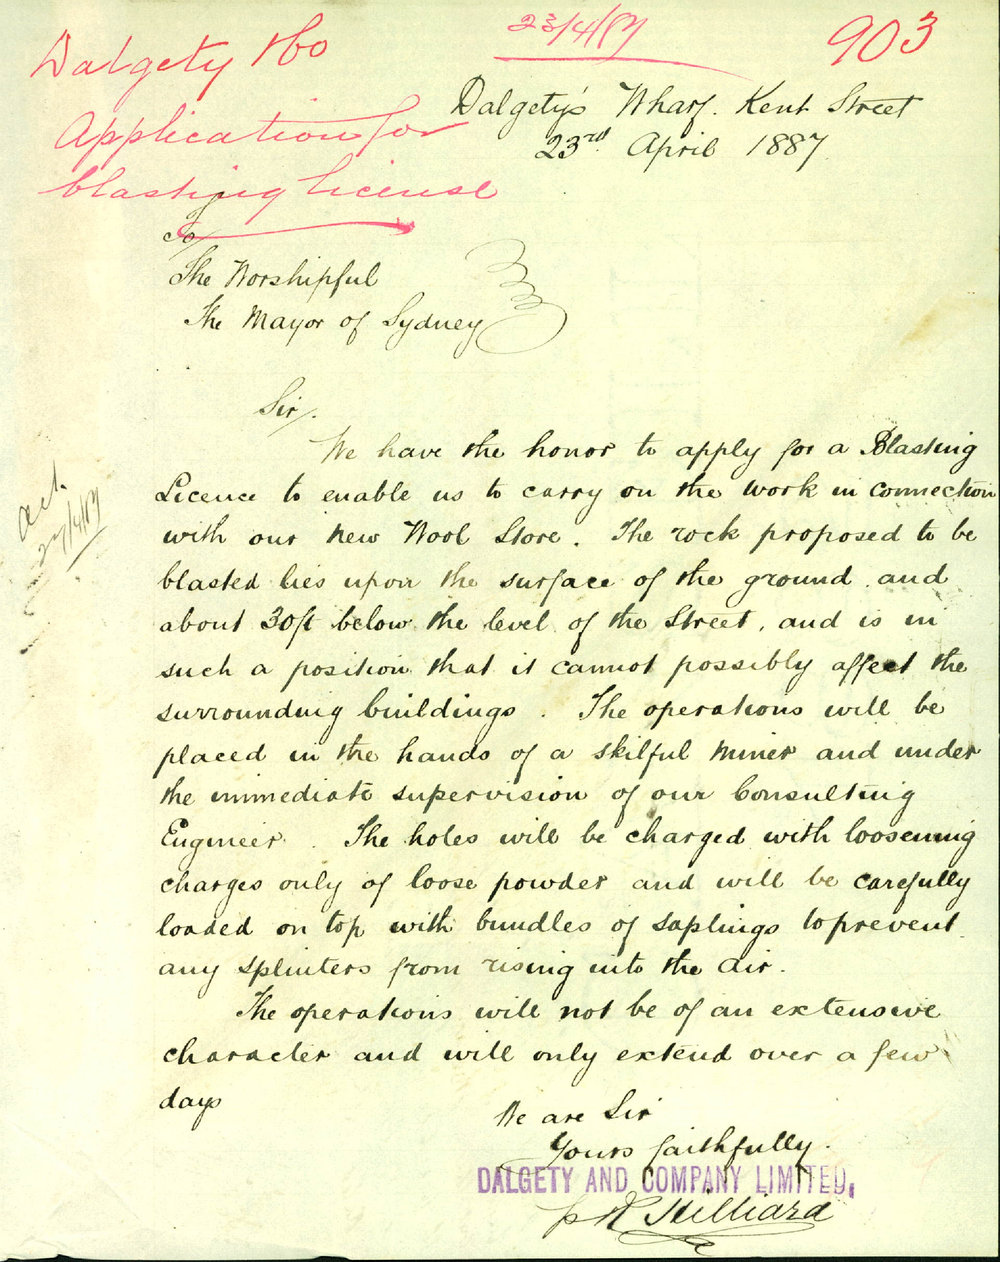 23/4/87
903
Dalgety & Co
Application for
blasting license
Dalgety's Wharf. Kent Street
23rd April 1887
To/
The Worshipful
The Mayor of Sydney
Sir/.
We have the honor to apply for a Blasting
Licence to enable us to carry on the work in connection
with our new Wool Store. The rock proposed to be
blasted lies upon the surface of the ground and
about 30ft below the level of the Street, and is in
such a position that it cannot possibly affect the
surrounding buildings. The operations will be
placed in the hands of a skilful miner and under
the immediate supervision of our Consulting
Engineer. The holes will be charged with loosening
charges only of loose powder and will be carefully
loaded on top with bundles of saplings to prevent
any splinters from rising into the air.
The operations will not be of an extensive
character and will only extend over a few
days
We are Sir
Yours faithfully.
DALGETY AND COMPANY LIMITED.
Hilliard
27/4/87